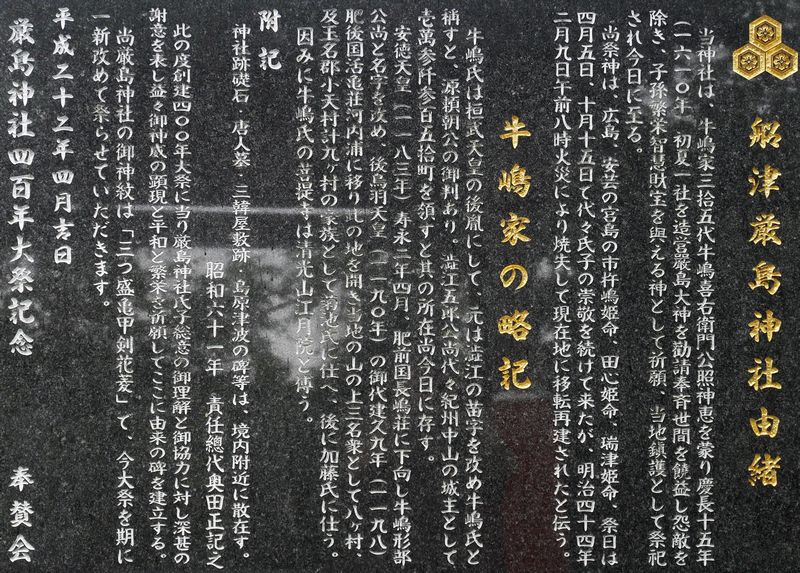 船津厳島神社由緒
当神社は、牛嶋家三拾五代牛嶋喜右衛門公照神恵を蒙り慶長十五年
(一六一〇年)初夏一社を造営厳島大神を勧請奉斉世間を饒益し怨敵を
除き、子孫繁栄智慧財宝を與える神として祈願、当地鎮護として祭祀
され今日に至る。
尚祭神は、広島、安芸の宮島の市杵嶋姫命、田心姫命、瑞津姫命、祭日は
四月五日、十月十五日で代々氏子の崇敬を続けて来たが、明治四十四年
二月九日午前八時火災により焼失して現在地に移転再建されたと伝う。
牛嶋家の略記
牛嶋氏は桓武天皇の後胤にして、元は澁江の苗字を改め牛嶋氏と
稱すと、源頼朝公の御判あり。澁江五郎公尚代々紀州中山の城主として
壱萬参阡参百五拾町を領すと其の所在尚今日に存す。
安徳天皇(一一八三年)寿永二年四月、肥前国長嶋荘に下向し牛嶋刑部
公尚と名字を改め、後鳥羽天皇(一一九〇年)の御代建久九年(一一九八)
肥後国活亀荘河内浦に移り此の地を開き当地の山の上三名衆として八ヶ村、
及玉名郡小天村計九ヶ村の豪族として菊池氏に仕へ、後に加藤氏に仕う。
因みに牛嶋氏の菩提寺は清光山江月院と傳う。
附記
神社跡礎石・唐人墓・三韓屋敷跡・島原津波の碑等は、境内附近に散在す。
昭和六十一年 責任總代奥田正記之
此の度創建四〇〇年大祭に当り厳島神社氏子総意の御理解と御協力に対し深甚の
謝意を表し益々御神威の顕現と平和と繁栄を祈願してここに由来の碑を建立する。
尚厳島神社の御神紋は「三つ盛亀甲剣花菱」で、今大祭を期に
一新改めて祭らせていただきます。
平成二十二年四月吉日
厳島神社四百年大祭記念 奉賛会